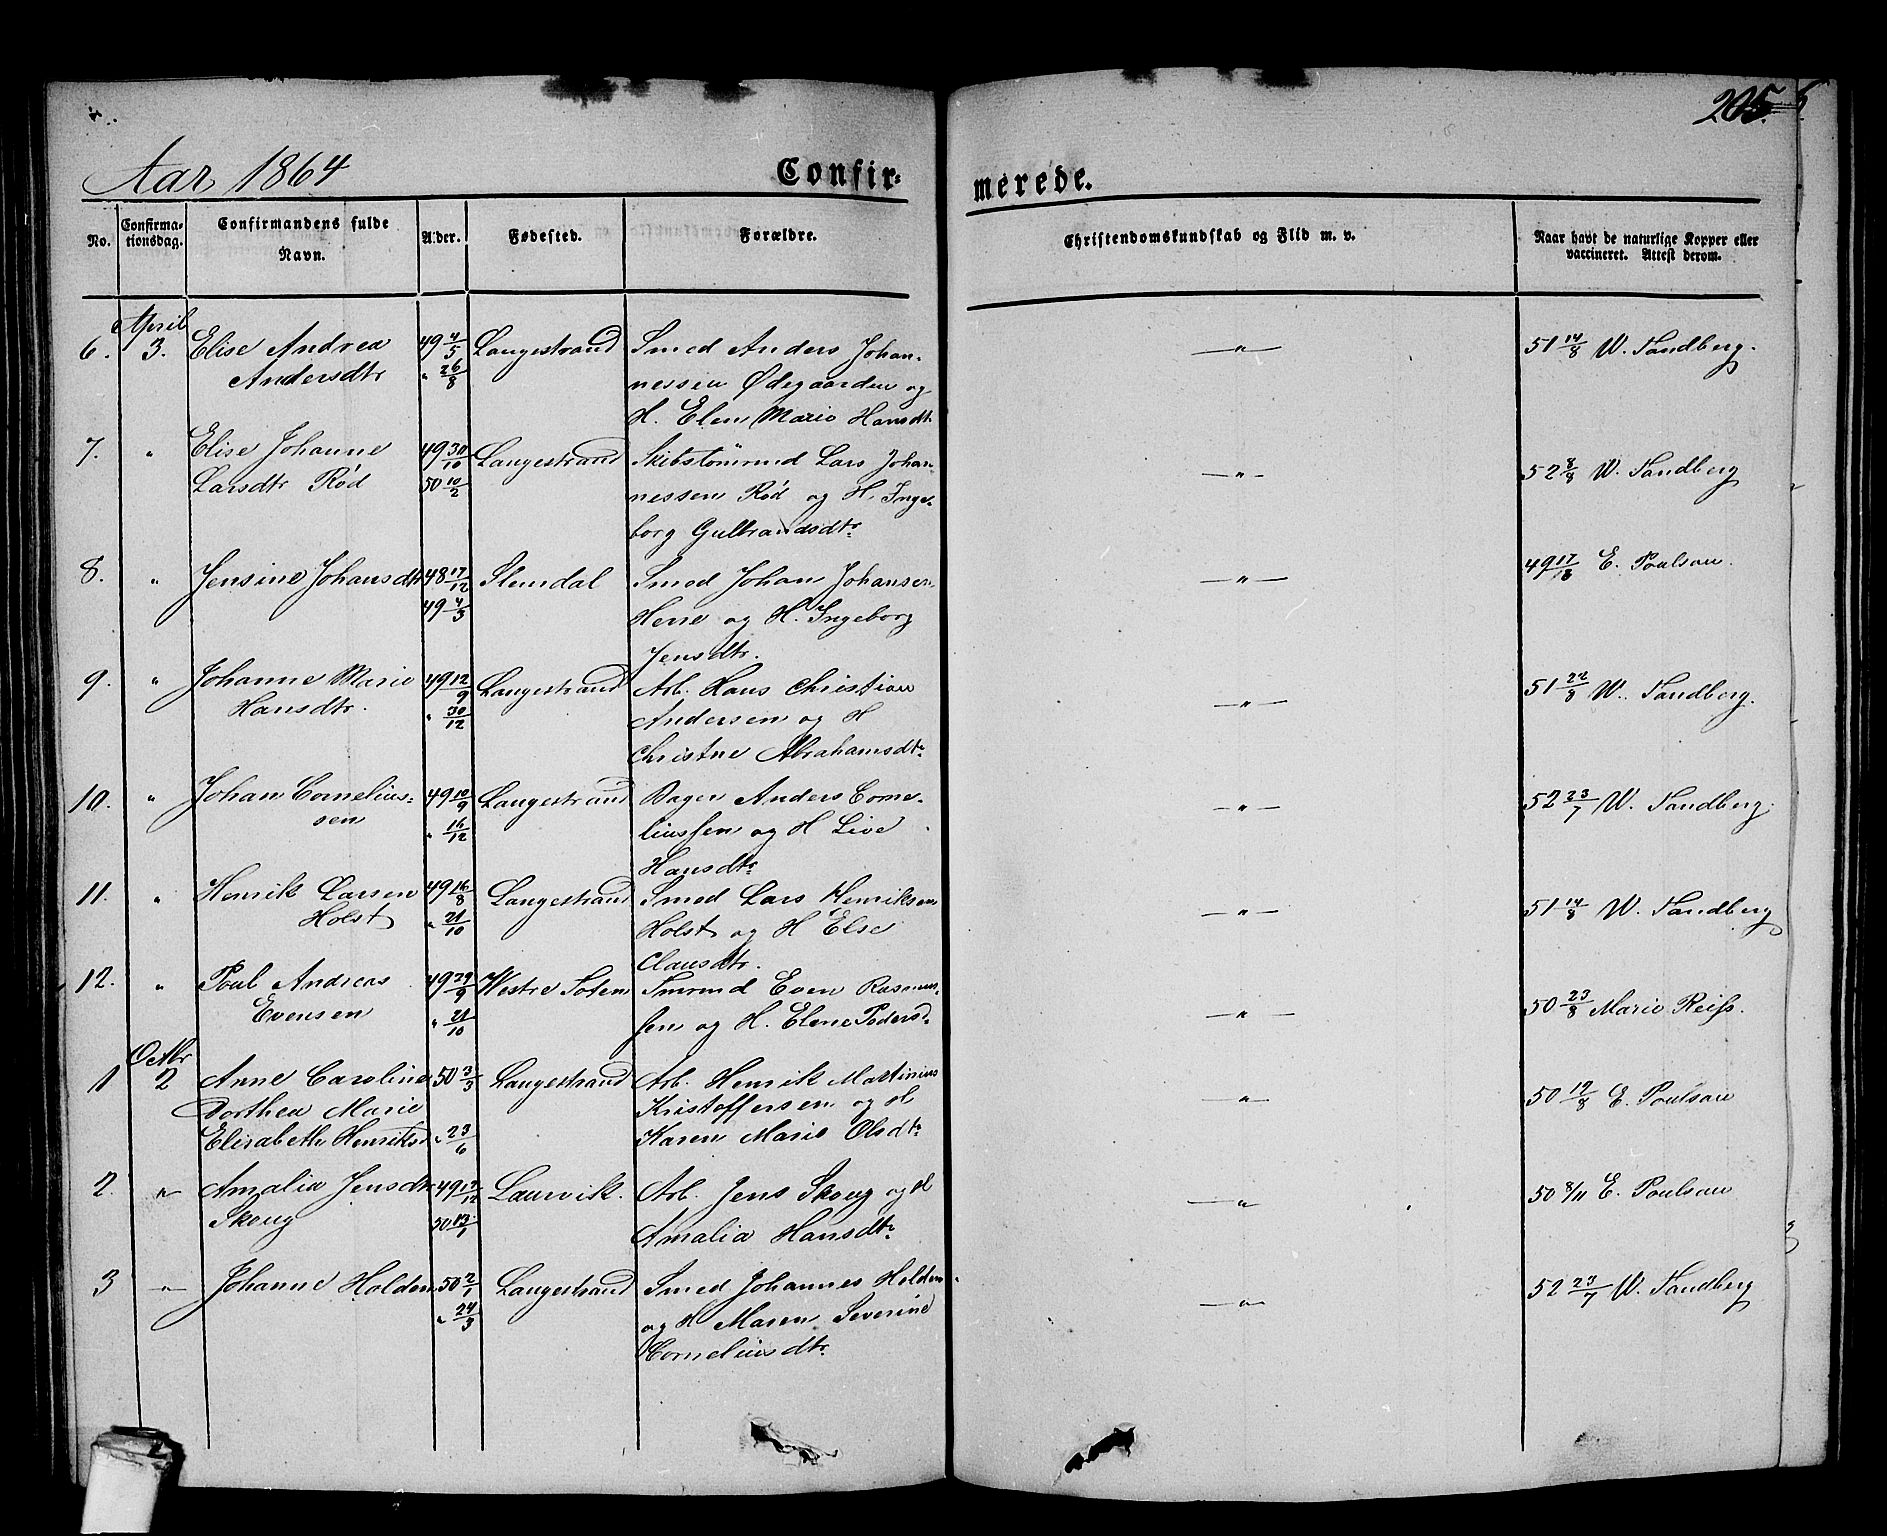 205.
Aar 1864 Confir- merede.
No. Confirma-tionsdag. Confirmandens fulde Navn. Alder. Fødested. Forældre. Christendomskundskab og Flid m. v. Naar havt de naturlige Kopper eller vaccineret. Attest derom.
April
6. 3. Elise Andrea 49 4/5 Langestrand Smed Anders Johan- — " — 51 14/8 W. Sandberg.
Andersdtr " 26/8 nessen Ødegaarden og
H. Elen Marie Hansdtr
7. " Elise Johanne 49 30/10 Langestrand Skibstømrmd Lars Johan- — " — 52 8/8 W. Sandberg
Larsdtr Rød 50 10/2 nessen Rød og H. Inge-
borg Gulbrandsdtr
8. " Jensine Johansdtr 48 17/12 Slemdal Smed Johan Johansen — " — 49 17/8 E. Poulsen.
49 4/3 Hene og H. Ingeborg
Jensdtr.
9. " Johanne Marie 49 12/9 Langestrand Arb. Hans Christian — " — 51 22/8 W. Sandberg.
Hansdtr. " 30/12 Andersen og H
Christne Abrahamsdtr
10. " Johan Cornelius- 49 10/9 Langestrand Bager Anders Corne- — " — 52 23/7 W. Sandberg.
sen " 16/12 liussen og H Live
Hansdtr
11. " Henrik Larsen 49 16/8 Langestrand Smed Lars Henriksen — " — 51 14/8 W. Sandberg
Holst " 21/10 Holst og H Else
Clausdtr.
12. " Poul Andreas 49 29/9 Westre Toten Smrmd Even Rasmus- — " — 50 23/8 Marie Reiss.
Evensen " 21/10 sen og H. Elene Pedersd.
Octbr
1 2 Anne Caroline 50 3/3 Langestrand Arb. Henrik Martinius — " — 50 19/8 E. Poulsen
Dorthea Marie Kristoffersen og H
Elisabeth Henriksd " 23/6 Karen Marie Olsdtr
2. " Amalia Jensdtr 49 17/12 Laurvik. Arb. Jens Skoug og H — " — 50 8/11 E. Poulsen
Skoug 50 13/1 Amalia Hansdtr
3 " Johanne Holden 50 2/1 Langestrand Smed Johannes Holden — " — 52 23/7 W. Sandberg
" 24/3 og H Maren Severine
Corneliusdtr